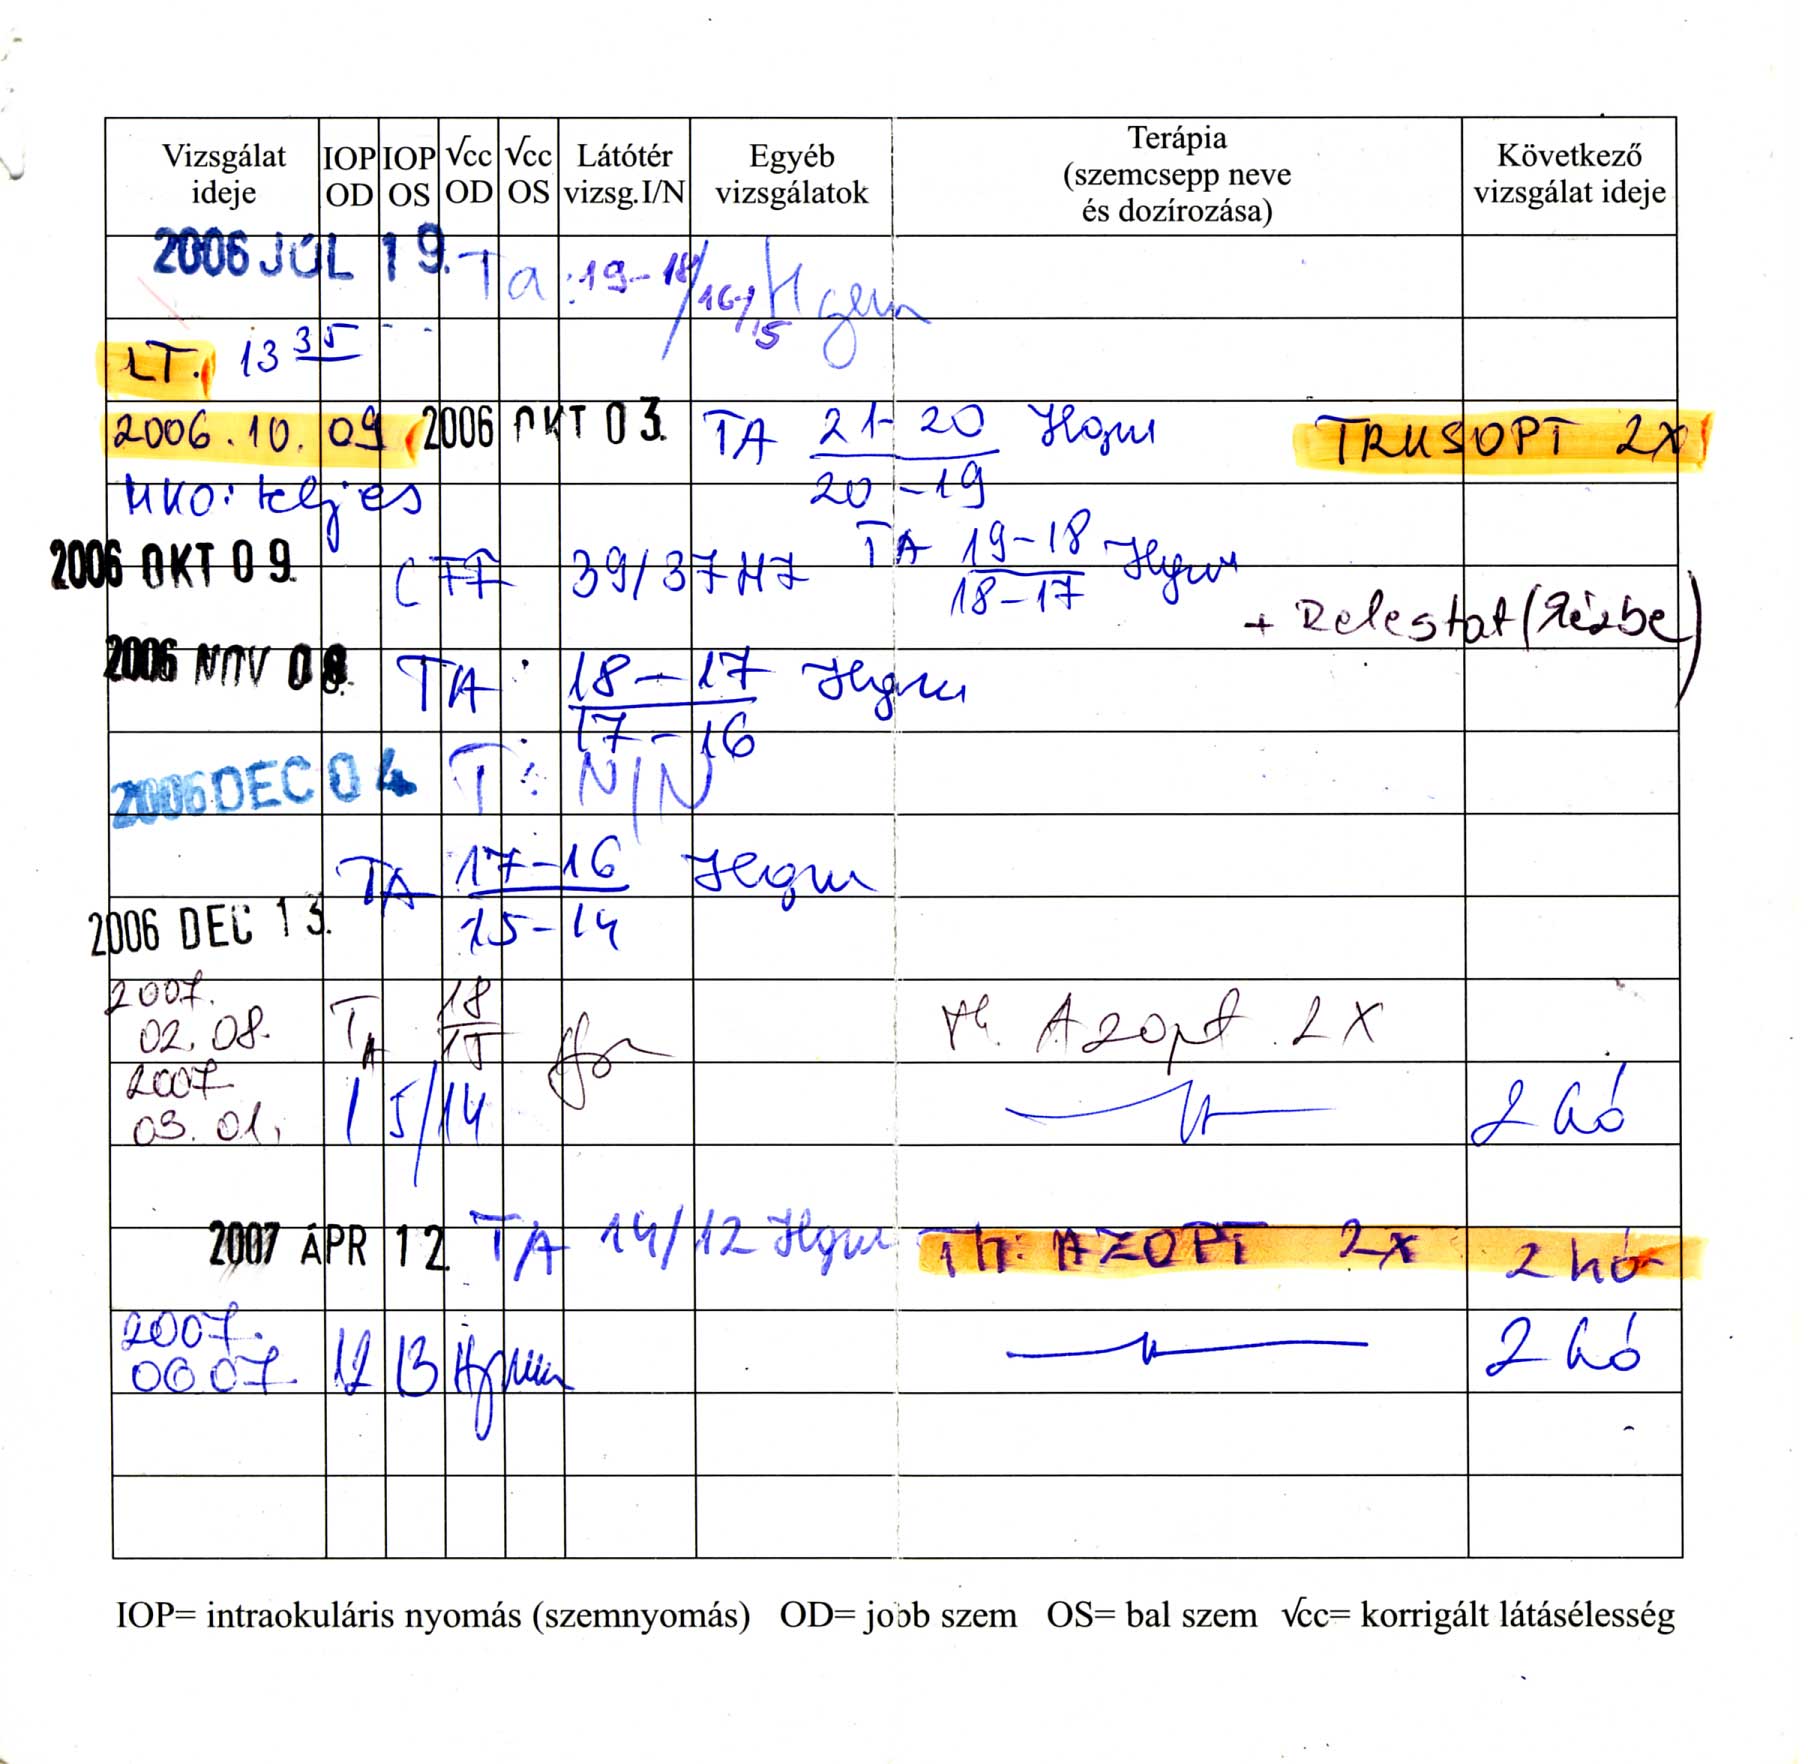 Vizsgálat ideje IOP OD IOP OS √cc OD √cc OS Látótér vizsg. I/N Egyéb vizsgálatok Terápia (szemcsepp neve és dozírozása) Következő vizsgálat ideje
2006 JÚL 19. Ta: 19-18/16-15 Hgmm
LT. 13 35
2006.10.09 2006 OKT 03. TA 21-20 Hgmm TRUSOPT 2X
MKO: teljes 20-19
TA 19-18 Hgmm
2006 OKT 09. CFF 39/37 HZ 18-17
+ Relestat (
2006 NOV 08. TA: 18-17 Hgmm
17-16
2006 DEC 04 T: N/N
TA 17-16 Hgmm
2006 DEC 13. 15-14
2007. 02.08. TA 18 Th. Azopt 2X
15
2007 03.01. 15/14 2 hó
2007 ÁPR 12. TA 14/12 Hgmm Th: AZOPT 2x 2 hó
2007. 06 07. 12 13 Hgmm 2 hó
IOP= intraokuláris nyomás (szemnyomás) OD= jobb szem OS= bal szem √cc= korrigált látásélesség